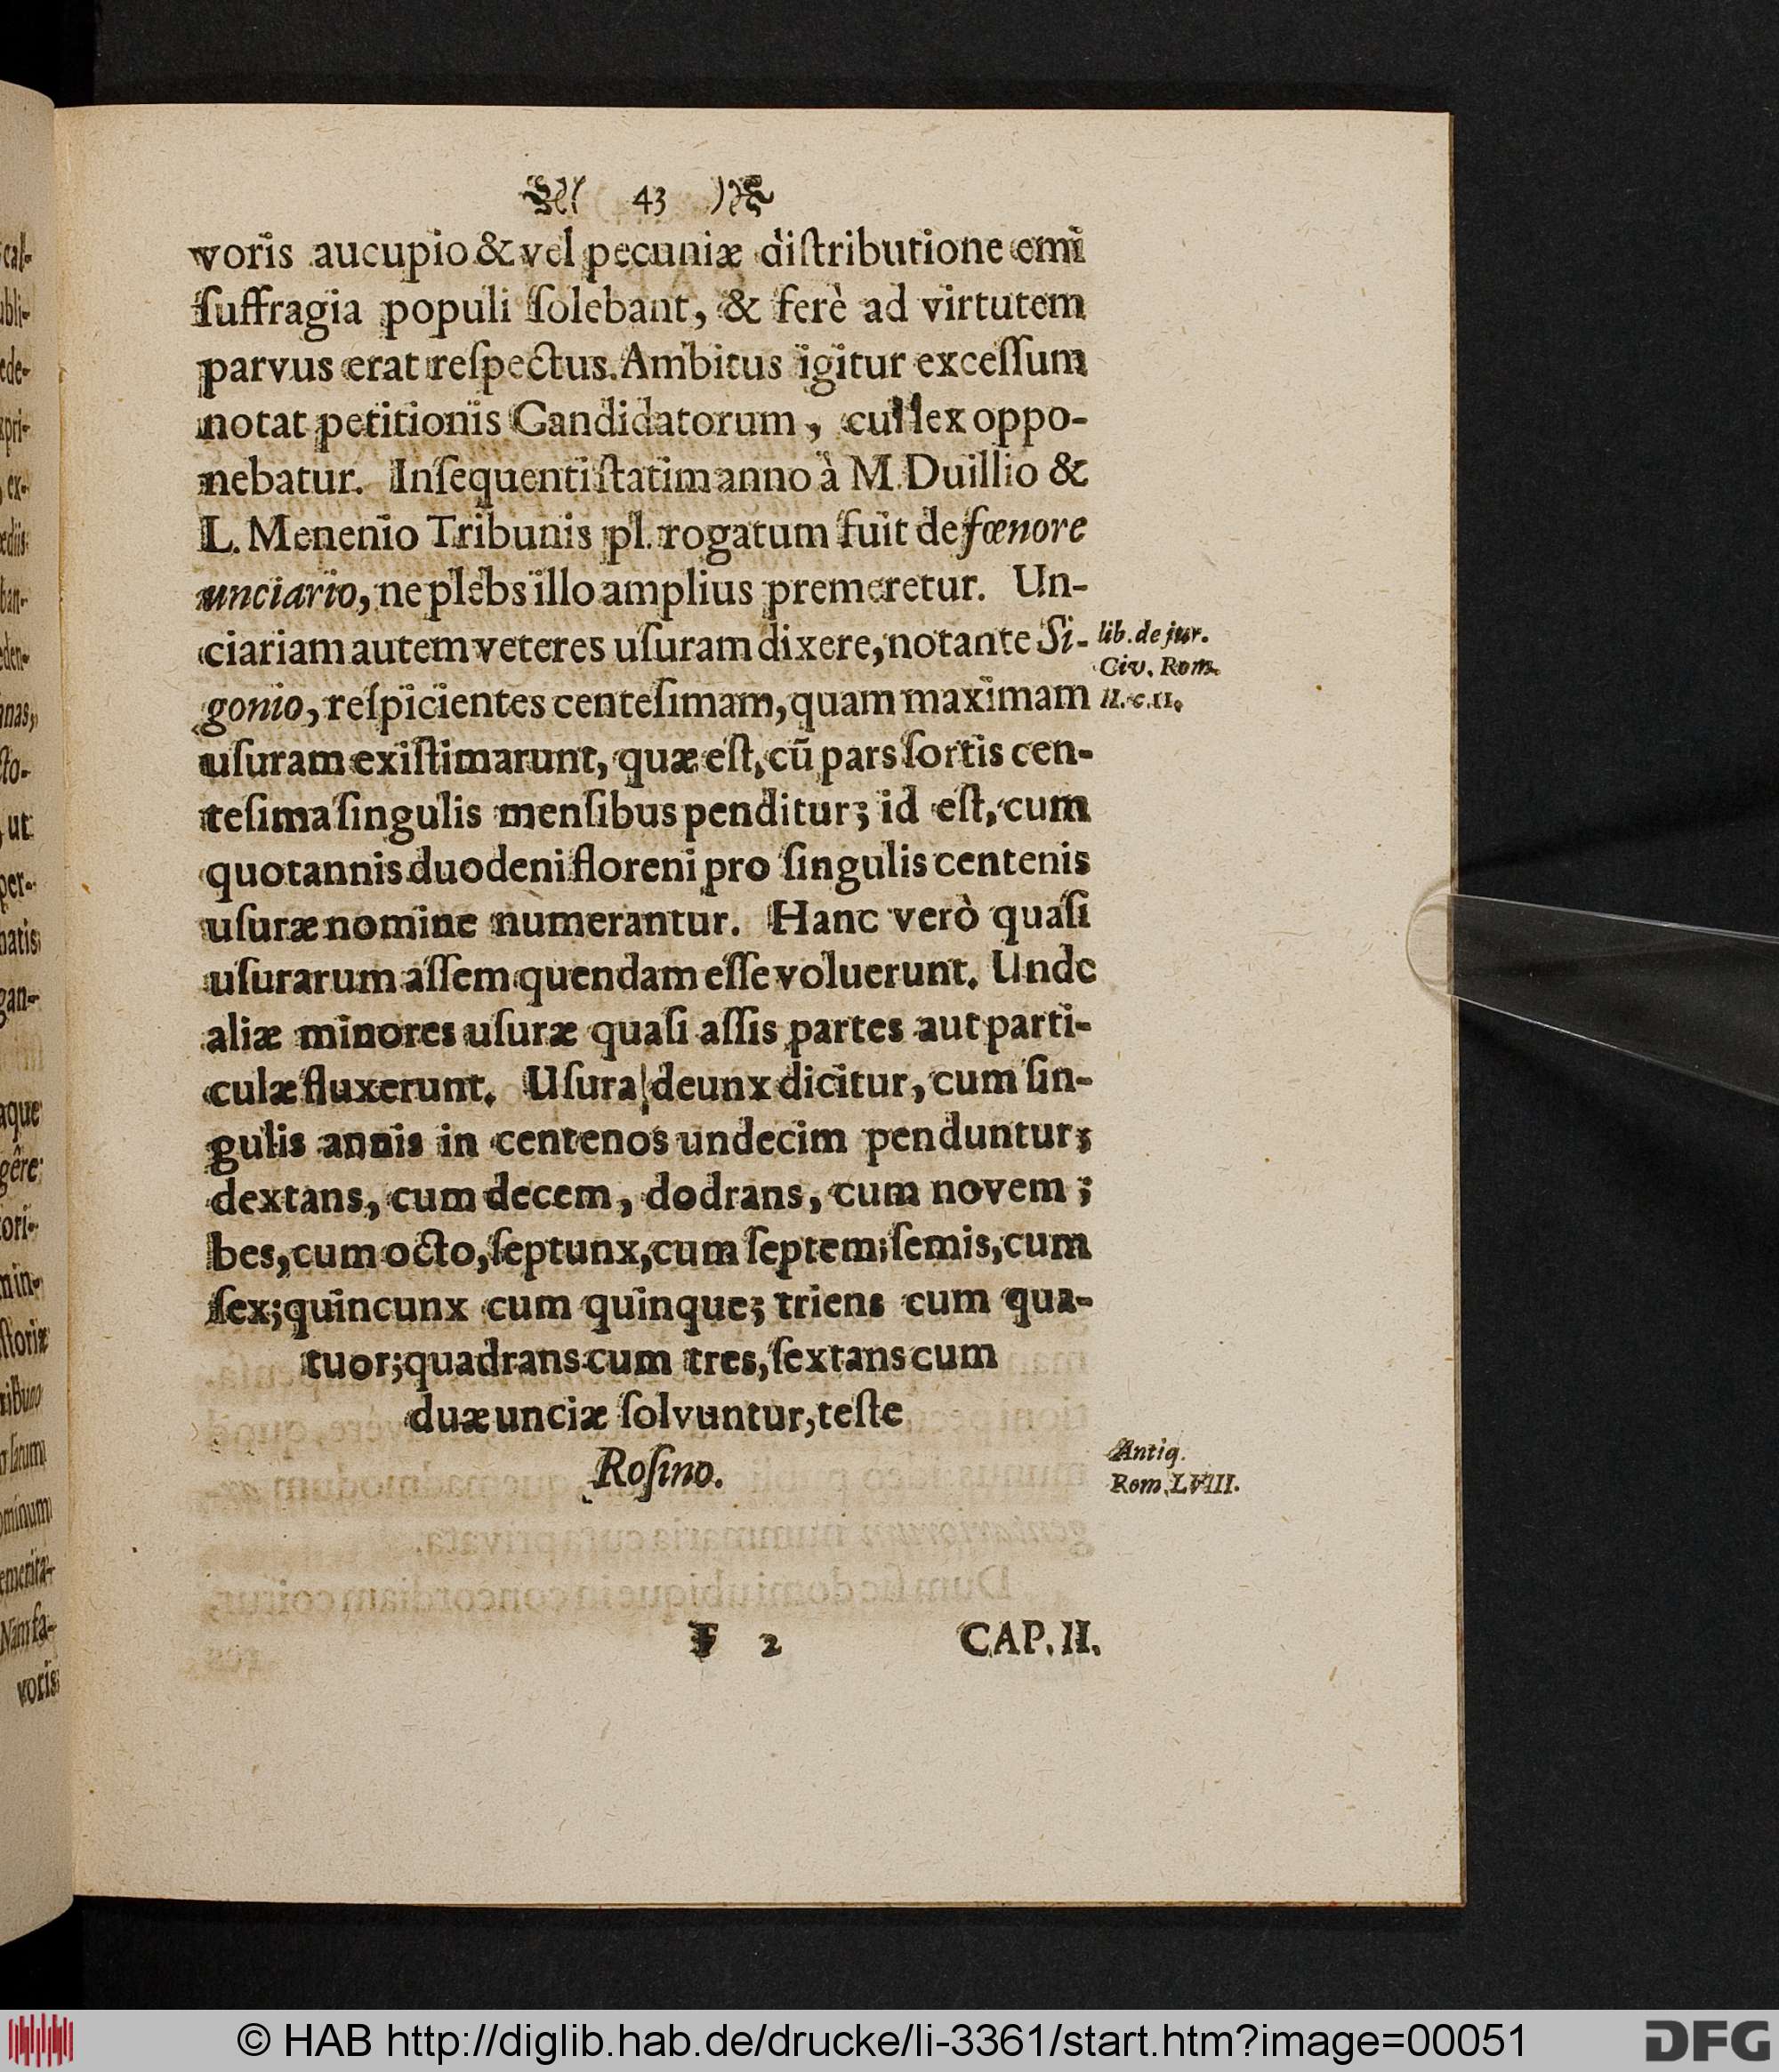 43
voris aucupio & vel pecuniæ diſtributione emi
ſuffragia populi ſolebant, & ferè ad virtutem
parvus erat reſpectus. Ambitus igitur exceſſum
notat petitionis Candidatorum, cui lex oppo-
nebatur. Inſequenti ſtatim anno à M. Duillio &
L. Menenio Tribunis pl. rogatum fuit de fœnore
unciario, ne plebs illo amplius premeretur. Un-
ciariam autem veteres uſuram dixere, notante Si-
lib. de jur.
Civ. Rom.
gonio, reſpicientes centeſimam, quam maximam
II. c. II.
uſuram exiſtimarunt, quæ eſt, cū pars ſortis cen-
teſima ſingulis menſibus penditur; id eſt, cum
quotannis duodeni floreni pro ſingulis centenis
uſuræ nomine numerantur. Hanc verò quaſi
uſurarum aſſem quendam eſſe voluerunt. Unde
aliæ minores uſuræ quaſi aſſis partes aut parti-
culæ fluxerunt. Uſura deunx dicitur, cum ſin-
gulis annis in centenos undecim penduntur;
dextans, cum decem, dodrans, cum novem;
bes, cum octo, ſeptunx, cum ſeptem; ſemis, cum
ſex; quincunx cum quinque; triens cum qua-
tuor; quadrans cum tres, ſextans cum
duæ unciæ ſolvuntur, teſte
Roſino.
Antiq.
Rom. L VIII.
F 2 CAP. II.
© HAB http://diglib.hab.de/drucke/li-3361/start.htm?image=00051
DFG